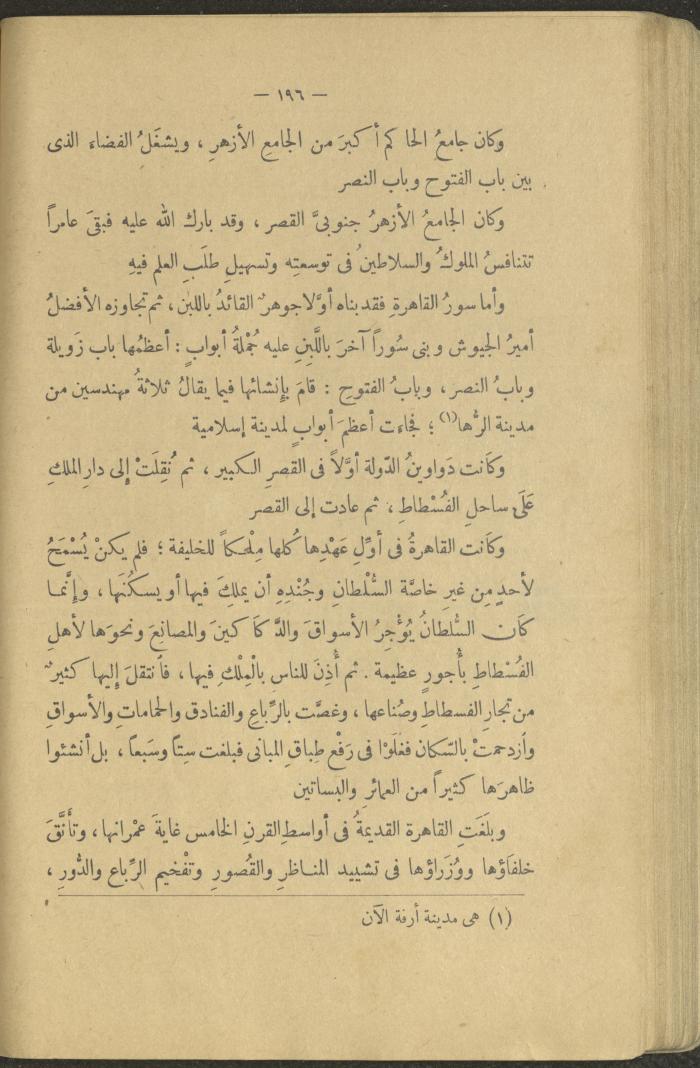 — ١٩٦ —
وكان جامعُ الحاكم أكبرَ من الجامع الأزهرِ ، ويشغَلُ الفضاء الذى
بين باب الفتوح وباب النصر
وكان الجامعُ الأزهرُ جنوبىَّ القصر ، وقد بارك الله عليه فبقىَ عامراً
تتنافسُ الملوكُ والسلاطينُ فى توسعتِه وتسهيلِ طلَبِ العلم فيهِ
وأما سورُ القاهرةِ فقد بناه أوَّلا جوهرٌ القائدُ باللبِن ، ثم تجاوزه الأفضلُ
أميرُ الجيوش وبنى سُوراً آخرَ باللَّبِنِ عليه جُمْلةُ أبوابٍ : أعظمُها باب زَويلة
وبابُ النصر ، وبابُ الفتوحِ : قامَ بإنشائها فيما يقالُ ثلاثةُ مهندسين من
مدينة الرُّها(١) ؛ فجاءت أعظمَ أبوابٍ لمدينة إسلامية
وكانت دَواوينُ الدّولة أوّلاً فى القصرِ الكبير ، ثم نُقِلَتْ إلى دارِ الملكِ
عَلَى ساحلِ الفُسْطاطِ ، ثم عادت إلى القصر
وكانت القاهرةُ فى أوّلِ عَهْدِها كُلها مِلْحكاً للخليفة ؛ فلم يكنْ يُسْمَحُ
لأحدٍ مِن غيرِ خاصَّة السُّلْطانِ وجُنْدِهِ أن يملِكَ فيها أو يسكُنَها ، وإنَّما
كان السُّلطانُ يُؤْجِرُ الأسواقَ والدَّكاكينَ والمصانِعَ ونحوَها لأهلِ
الفُسْطاطِ بأُجورٍ عظيمة . ثم أُذِنَ للناسِ بالْمِلْكِ فيها ، فانتقلَ إليها كثيرٌ
من تجارِ الفسطاطِ وصُناعها ، وغصَّت بالرِّباعِ والفنادق والحمامات والأسواقِ
وازدحمتْ بالسّكان فغلَوْا فى رَفْع طِباقِ المبانى فبلغت سِتّاً وسَبعاً ، بل أنشئوا
ظاهرَها كثيراً من العمائر والبساتين
وبلَغَتِ القاهرة القديمةُ فى أواسطِ القرنِ الخامس غايةَ عمْرانها ، وتأنَّقَ
خلفاؤها ووُزَراؤها فى تشييد المناظرِ والقُصورِ وتفْخيم الرِّباع والدُّورِ ،
(١) هى مدينة أرفة الآن